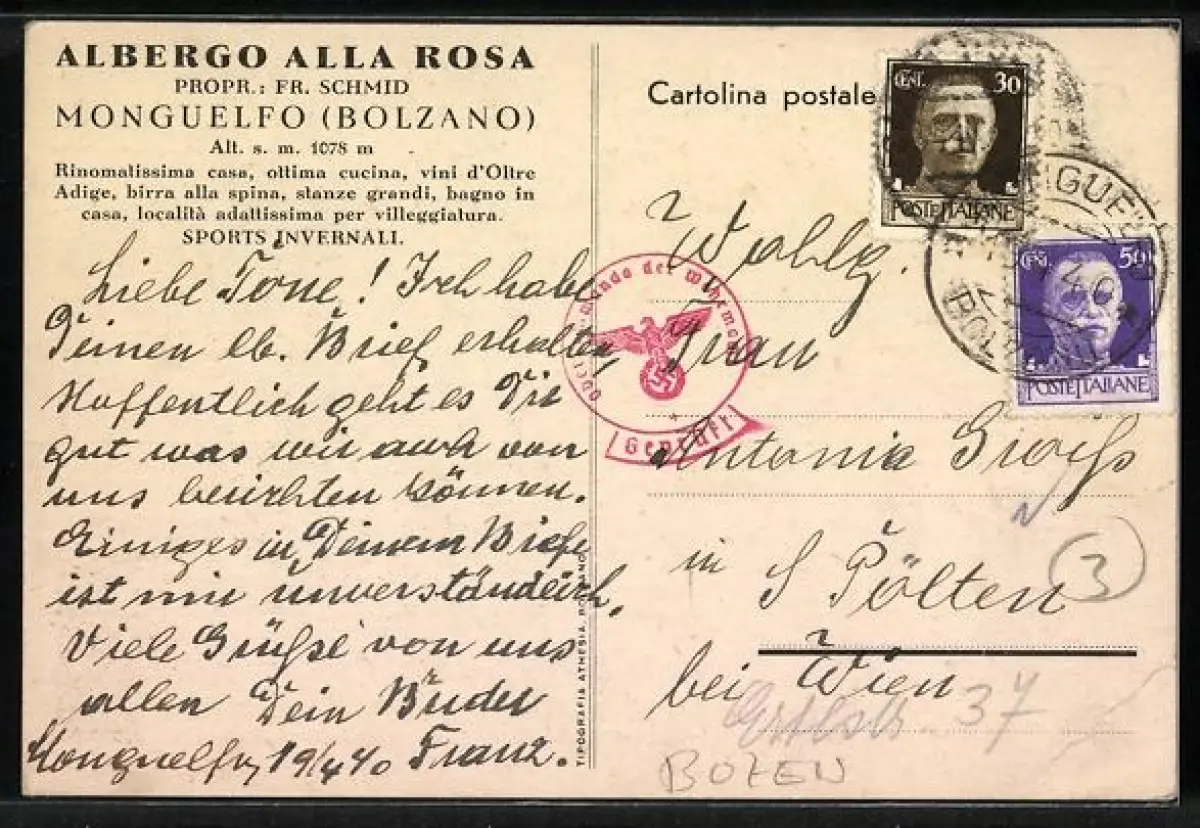 ALBERGO ALLA ROSA
PROPR.: FR. SCHMID
MONGUELFO (BOLZANO)
Alt. s. m. 1078 m
Rinomatissima casa, ottima cucina, vini d'Oltre
Adige, birra alla spina, stanze grandi, bagno in
casa, località adattissima per villeggiatura.
SPORTS INVERNALI.
Liebe Tone! Ich habe
Deinen lb. Brief erhalten
Hoffentlich geht es Dir
gut was wir auch von
uns berichten können.
Einiges in Deinem Briefe
ist mir unverständlich.
Viele Grüße von uns
allen Dein Bruder
Franz.
Monguelfo, 19/4 40
TIPOGRAFIA ATHESIA, BOLZANO
Cartolina postale
CENT. 30
POSTE ITALIANE
CENT. 50
POSTE ITALIANE
der Wehrmacht
Geprüft
Wohlg.
Frau
Antonie
in S Pölten
bei Wien
3
37
BOZEN